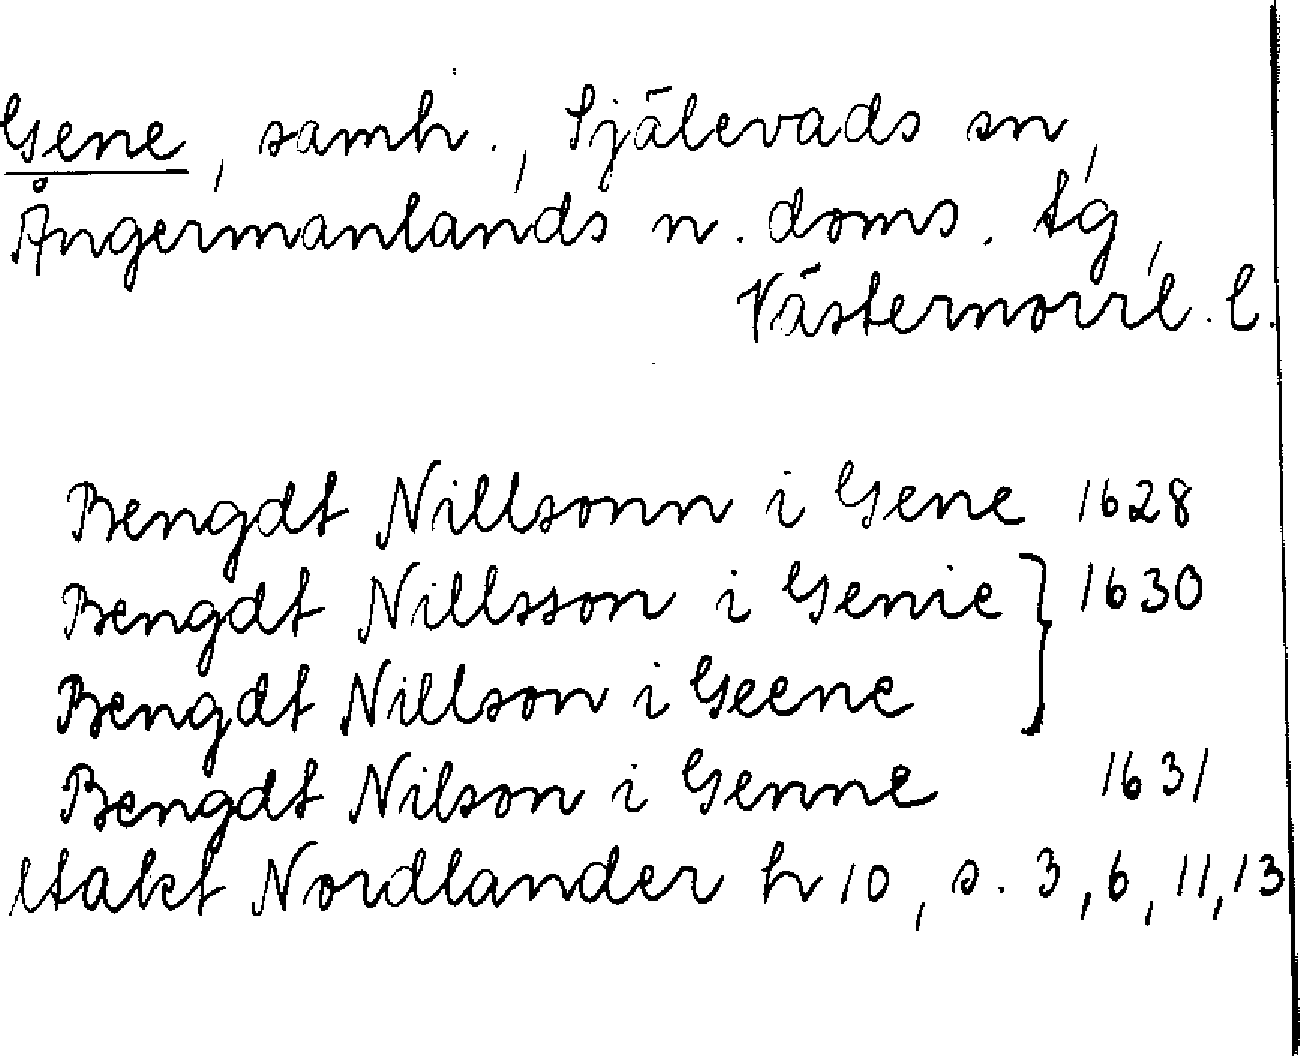 Gene, samh., Själevads sn,
Ångermanlands n. doms. tg,
Västernorrl. l.
Bengdt Nillsonn i Gene 1628
Bengdt Nillsson i Genie } 1630
Bengdt Nillson i Geene
Bengdt Nilson i Genne 1631
Utakt Nordlander h 10, s. 3, 6, 11, 13